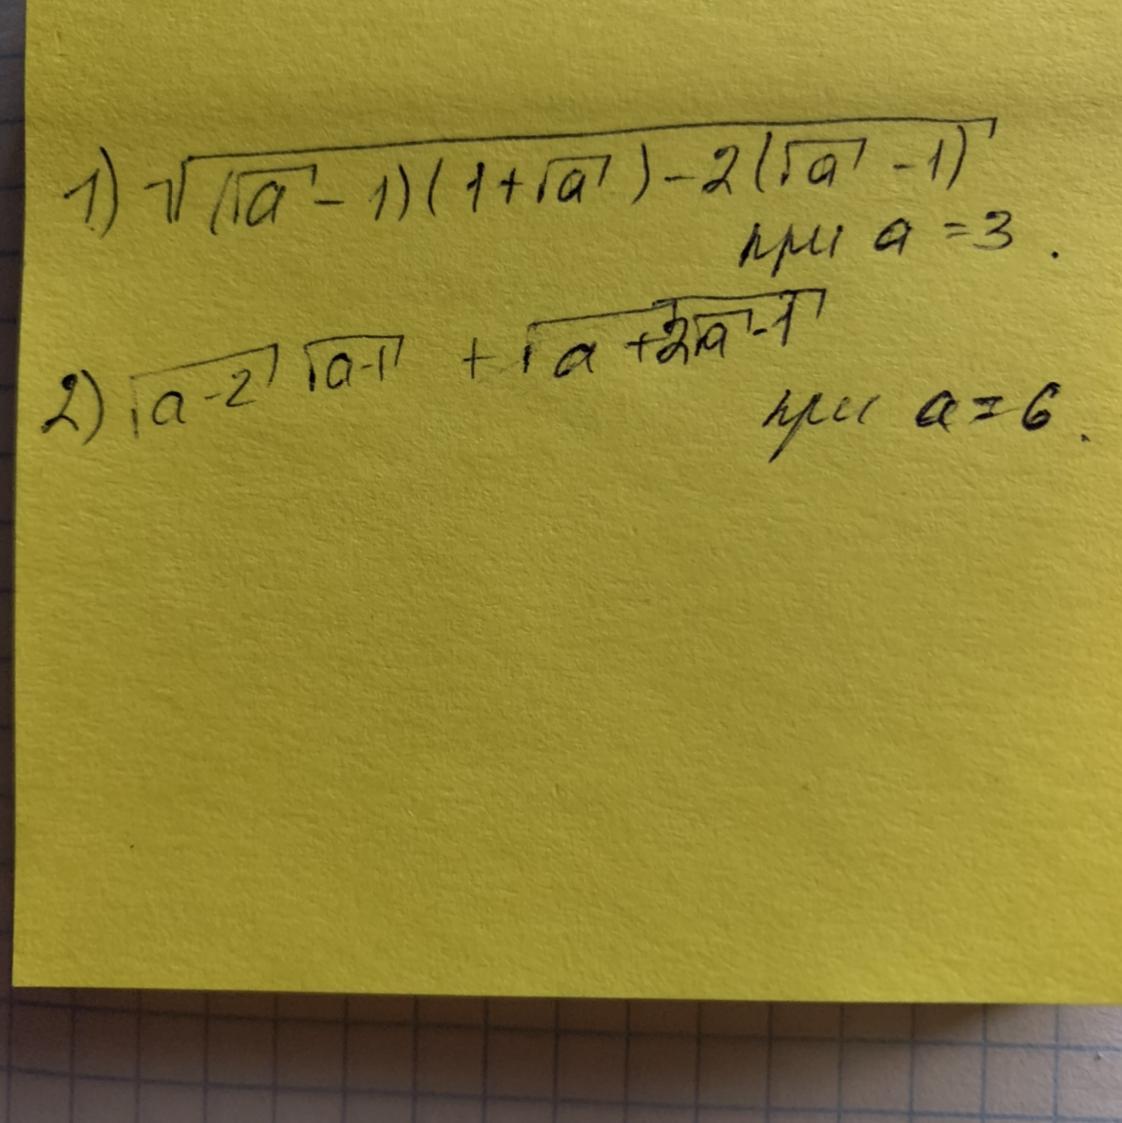 1) √((√a - 1)(1 + √a) - 2(√a - 1))
при a = 3.
2) √(a - 2) √(a - 1) + √(a + 2√a - 1)
при a = 6.